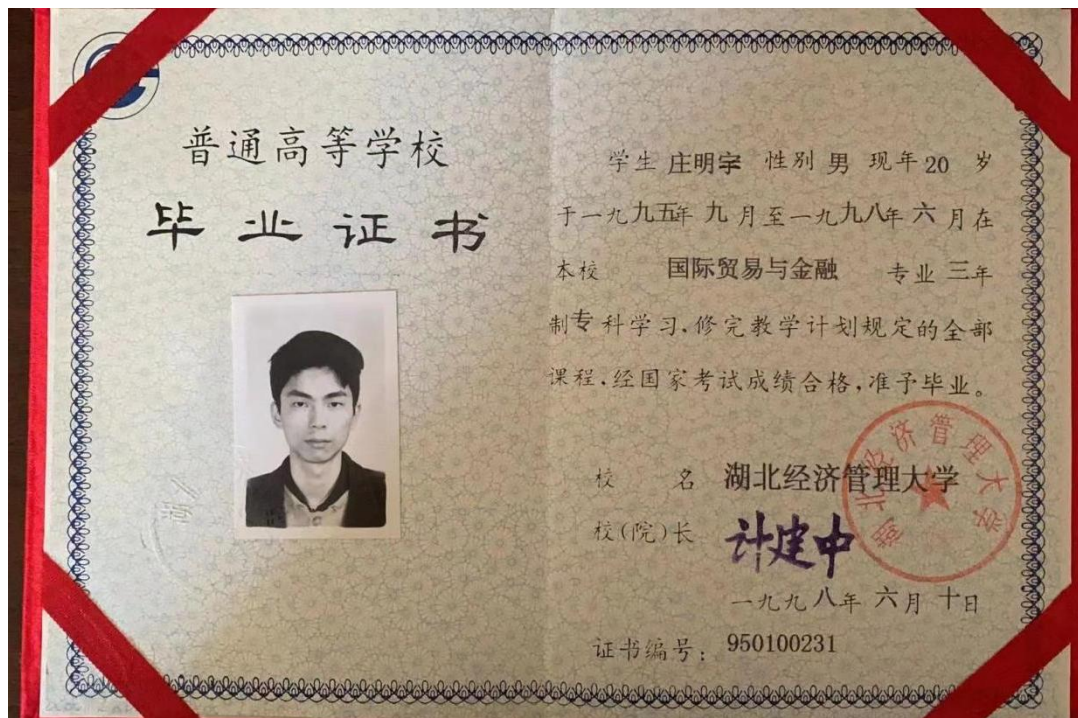 普通高等学校
毕业证书
学生 庄明宇 性别 男 现年 20 岁
于一九九五年 九月至一九九八年 六月在
本校 国际贸易与金融 专业 三年
制专科学习,修完教学计划规定的全部
课程,经国家考试成绩合格,准予毕业。
校 名 湖北经济管理大学
校(院)长 计建中
一九九八年 六月 十日
证书编号: 950100231
湖北经济管理大学